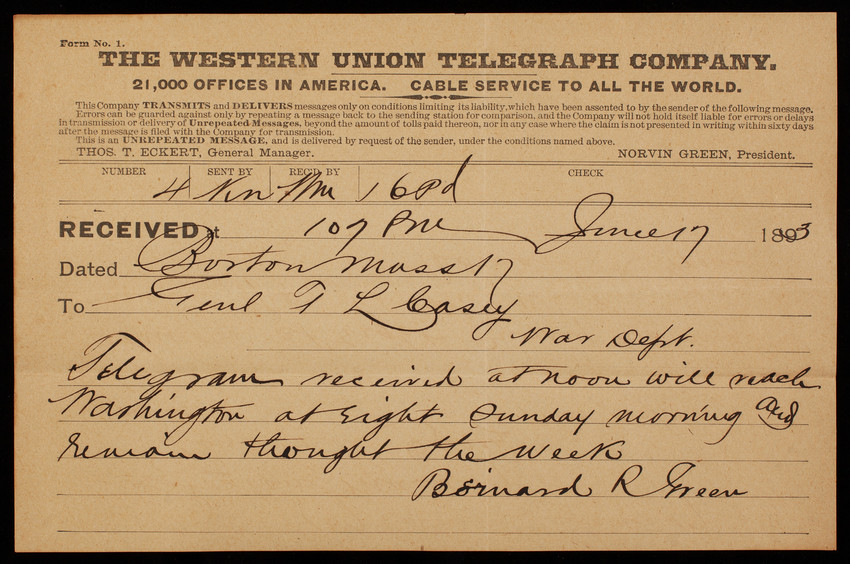 Form No. 1.
THE WESTERN UNION TELEGRAPH COMPANY.
21,000 OFFICES IN AMERICA. CABLE SERVICE TO ALL THE WORLD.
This Company TRANSMITS and DELIVERS messages only on conditions limiting its liability, which have been assented to by the sender of the following message.
Errors can be guarded against only by repeating a message back to the sending station for comparison, and the Company will not hold itself liable for errors or delays
in transmission or delivery of Unrepeated Messages, beyond the amount of tolls paid thereon, nor in any case where the claim is not presented in writing within sixty days
after the message is filed with the Company for transmission.
This is an UNREPEATED MESSAGE, and is delivered by request of the sender, under the conditions named above.
THOS. T. ECKERT, General Manager. NORVIN GREEN, President.
NUMBER SENT BY REC'D BY CHECK
4 Kn 16 Pd
RECEIVED at 107 Pm June 17 1893
Dated Boston Mass 17
To Genl T L Casey
War Dept.
Telegram received at noon will reach
Washington at Eight Sunday morning and
remain thought the week
Bernard R Green